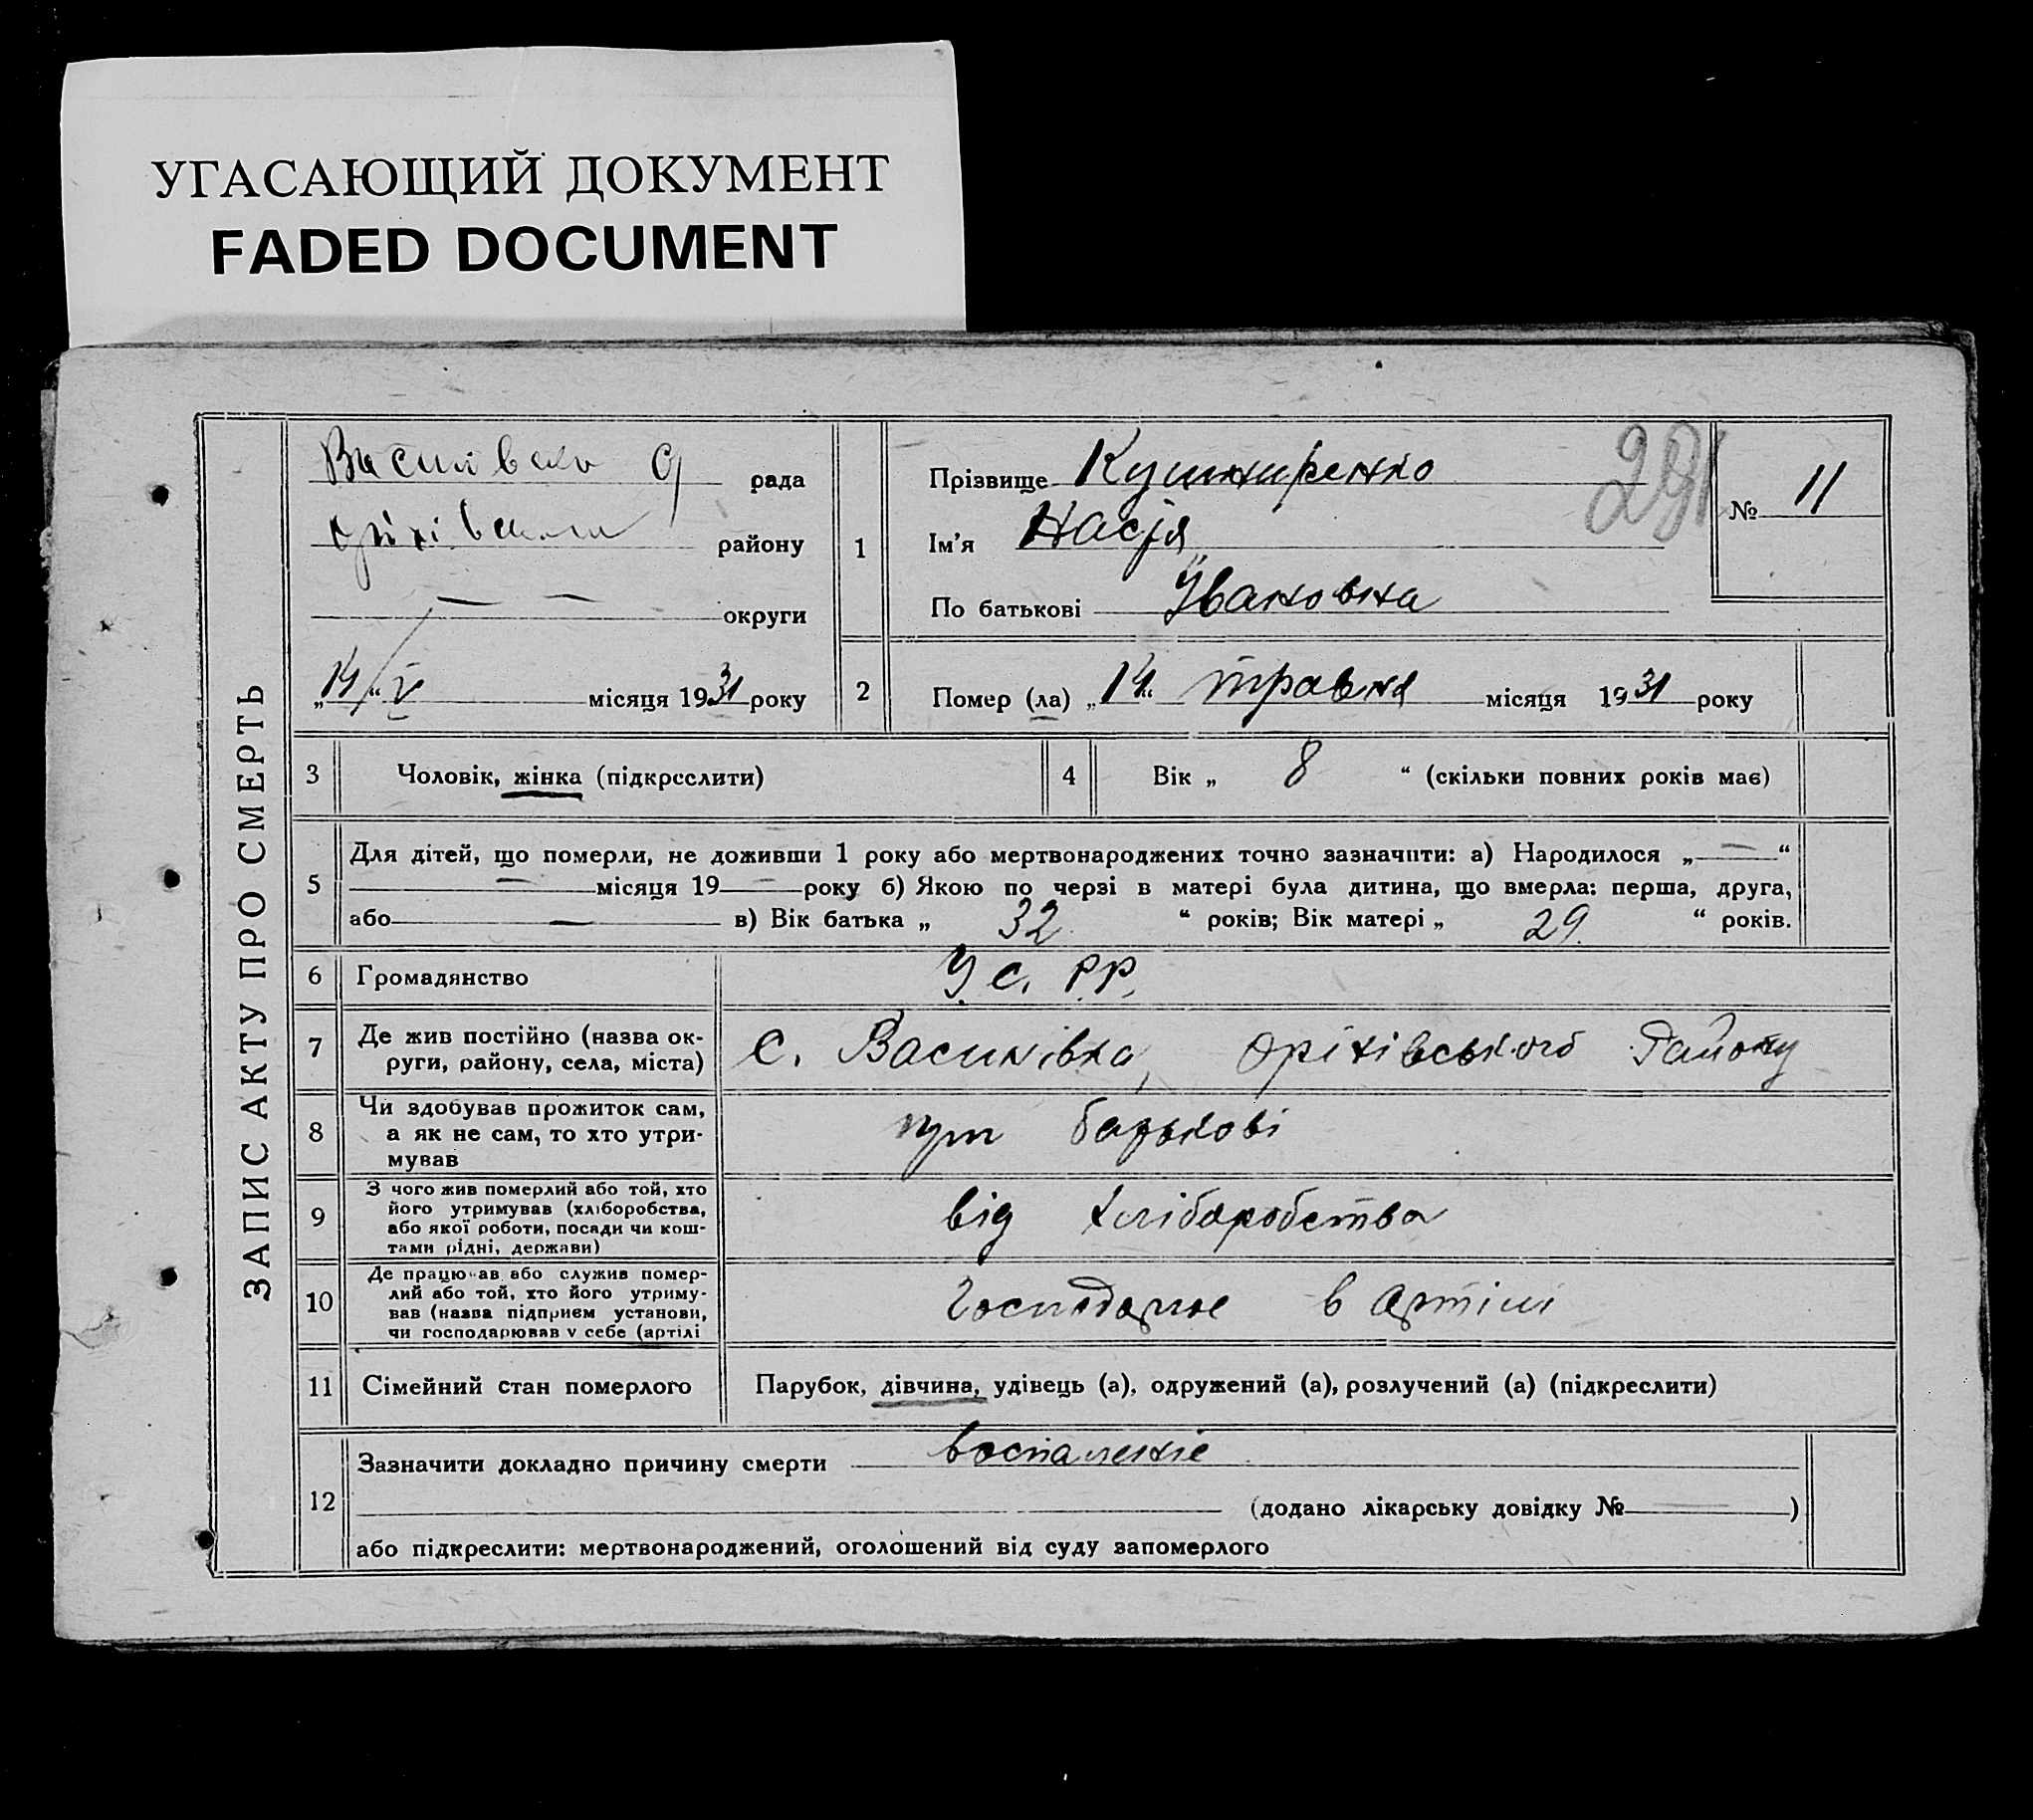 УГАСАЮЩИЙ ДОКУМЕНТ
FADED DOCUMENT
ЗАПИС АКТУ ПРО СМЕРТЬ
рада
району
округи
„14/V“ місяця 1931 року
1
Прізвище Кушниренко
Ім’я Настя
По батькові Івановна
291
№ 11
2
Помер (ла) „14“ травня місяця 1931 року
3 Чоловік, жінка (підкреслити)
4 Вік „ 8 “ (скільки повних років має)
5
Для дітей, що померли, не доживши 1 року або мертвонароджених точно зазначити: а) Народилося „—“
— місяця 19 — року б) Якою по черзі в матері була дитина, що вмерла: перша, друга,
або — в) Вік батька „ 32 “ років; Вік матері „ 29 “ років.
6 Громадянство У.С.Р.Р.
7 Де жив постійно (назва ок-
руги, району, села, міста)
с. Василівка, Оріхівського району
8 Чи здобував прожиток сам,
а як не сам, то хто утри-
мував
при батькові
9 З чого жив померлий або той, хто
його утримував (хліборобства,
або якої роботи, посади чи кош-
тами рідні, держави)
від хліборобства
10 Де працював або служив помер-
лий або той, хто його утриму-
вав (назва підприєм установи,
чи господарював у себе (артілі
в артілі
11 Сімейний стан померлого Парубок, дівчина, удівець (а), одружений (а), розлучений (а) (підкреслити)
12
Зазначити докладно причину смерти воспаленіе
(додано лікарську довідку № )
або підкреслити: мертвонароджений, оголошений від суду запомерлого